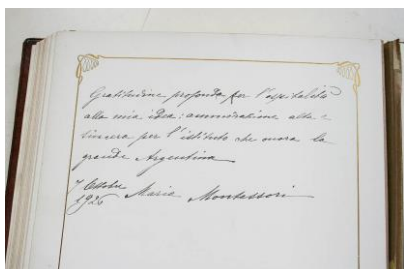 Gratitudine profonda per l'ospitalità
alla mia idea: ammirazione alta e
sincera per l'istituto che onora la
grande Argentina
7 Ottobre
1926 Maria Montessori